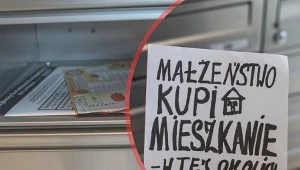 MAŁŻEŃSTWO
KUPI
MIESZKANIE
-W TEJ OKOLICY